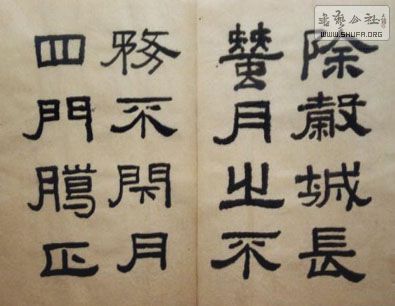 書藝公社
WWW.SHUFA.ORG
除穀城長
蠶月之不
務不閉月
四門臘正